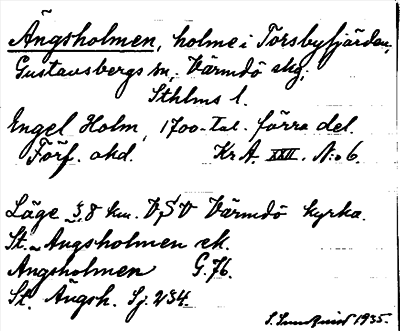 Ängsholmen, holme i Torsbyfjärden,
Gustavsbergs sn, Värmdö skg;
Sthlms l.
Engel Holm, 1700-tal. förra del.
Förf. okd. Kr A. XXII. N:o 6.
Läge 3,8 km. VSV Värmdö kyrka.
St. Ängsholmen ek.
Ängsholmen G.76.
St. Ängsh. Sj. 234.
1935.